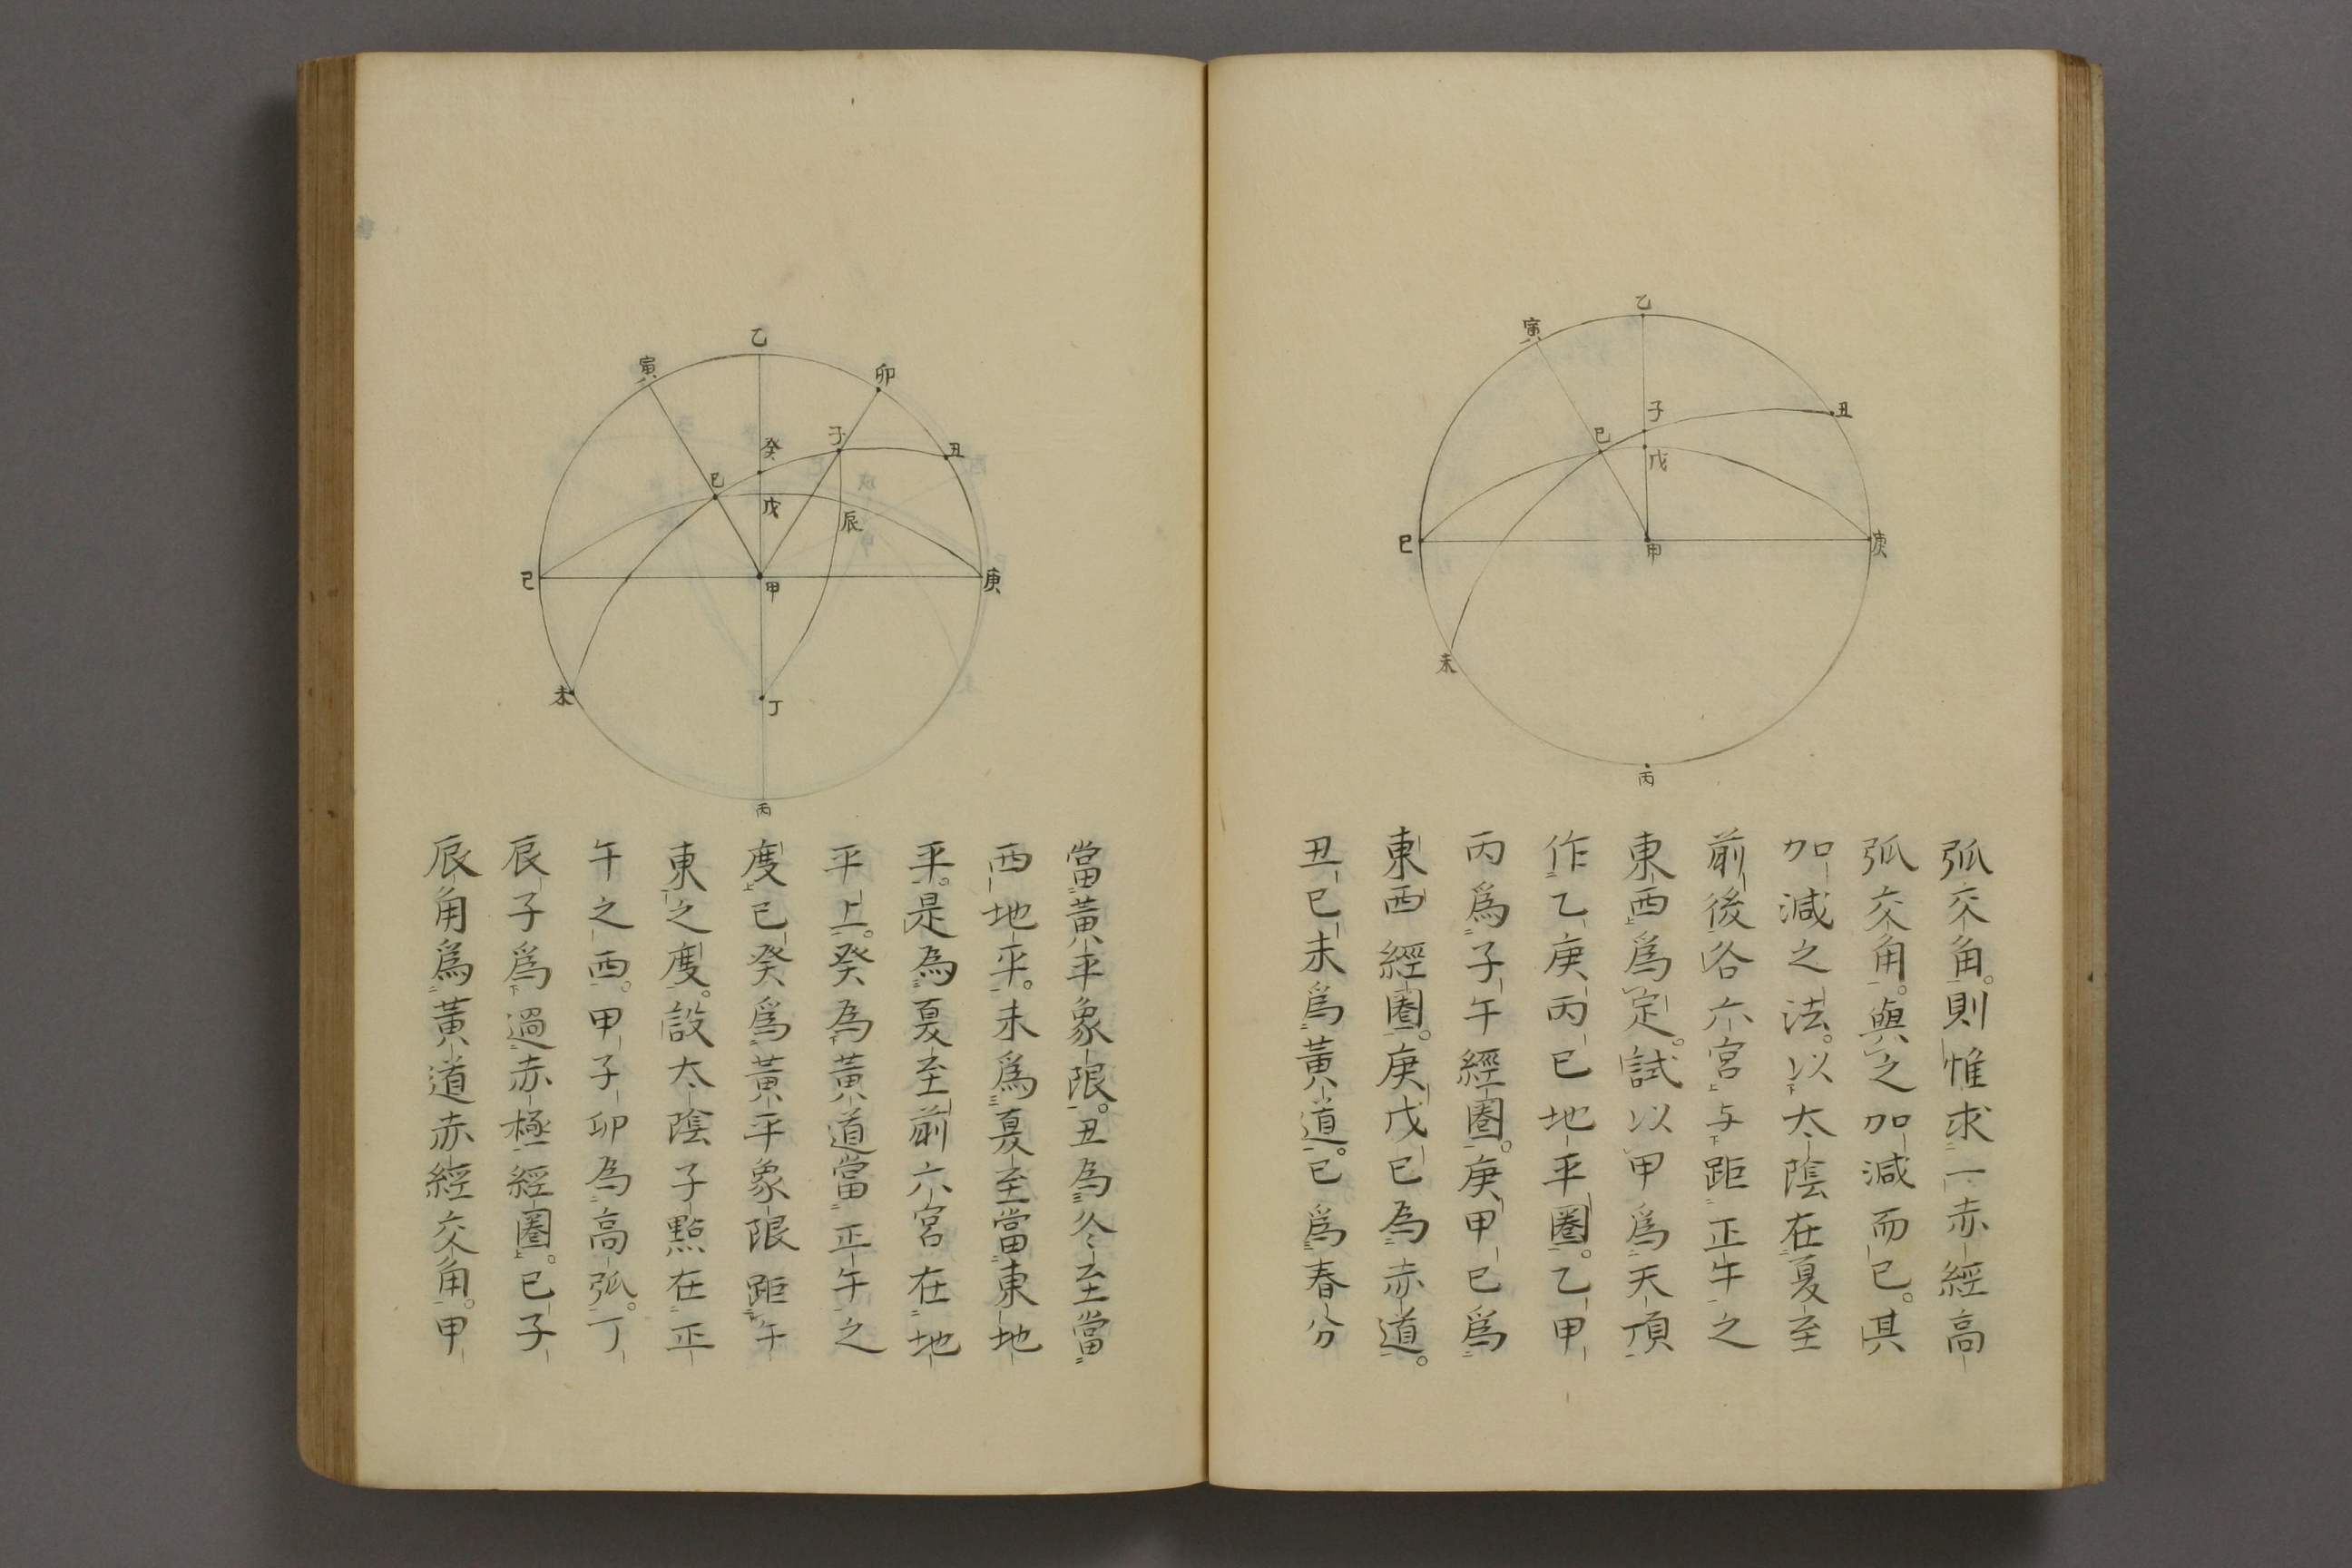 乙
寅
丑
子
巳
戊
己
甲
庚
未
丙
弧交角。則惟求一赤經高
弧交角。與之加減而已。其
加減之法。以太陰在夏至
前後各六宮与距正午之
東西爲定。試以甲爲天頂
作乙庚丙己地平圈。乙甲
丙爲子午經圈。庚甲己爲
東西經圈。庚戊己為赤道。
丑巳未爲黃道。巳爲春分
乙
寅
卯
癸
子
丑
巳
戊
辰
己
甲
庚
未
丁
丙
當黃平象限。丑為冬至當
西地平。未爲夏至當東地
平。是為夏至前六宮在地
平上。癸為黃道當正午之
度巳癸爲黃平象限距午
東之度。設太陰子點在正
午之西。甲子卯為高弧。丁
辰子爲過赤極經圈。巳子
辰角爲黃道赤經交角。甲